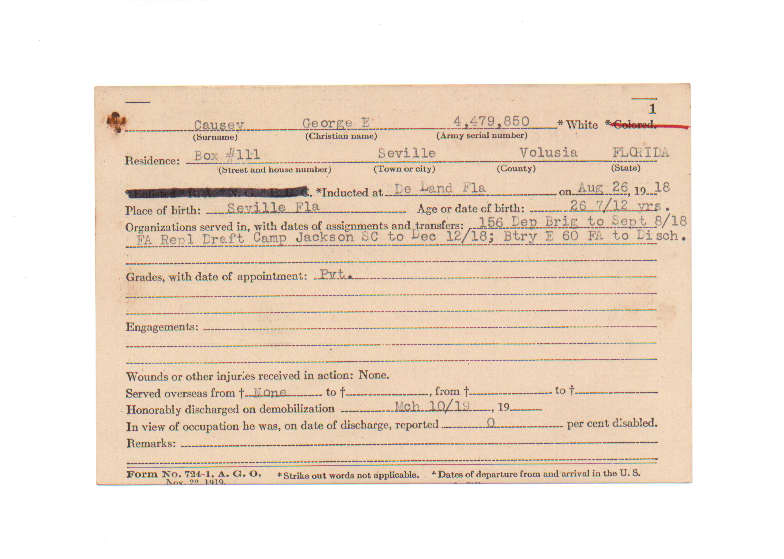 1
Causey George E 4,479,850 * White * Colored.
(Surname) (Christian name) (Army serial number)
Residence: Box #111 Seville Volusia FLORIDA
(Street and house number) (Town or city) (County) (State)
*Inducted at De Land Fla on Aug 26, 1918
Place of birth: Seville Fla Age or date of birth: 26 7/12 yrs.
Organizations served in, with dates of assignments and transfers: 156 Dep Brig to Sept 8/18
FA Repl Draft Camp Jackson SC to Dec 12/18; Btry E 60 FA to Disch.
Grades, with date of appointment: Pvt.
Engagements:
Wounds or other injuries received in action: None.
Served overseas from † None to †, from † to †
Honorably discharged on demobilization Mch 10/19, 19
In view of occupation he was, on date of discharge, reported 0 per cent disabled.
Remarks:
Form No. 724-1, A. G. O. *Strike out words not applicable. †Dates of departure from and arrival in the U. S.
Nov. 22, 1919.